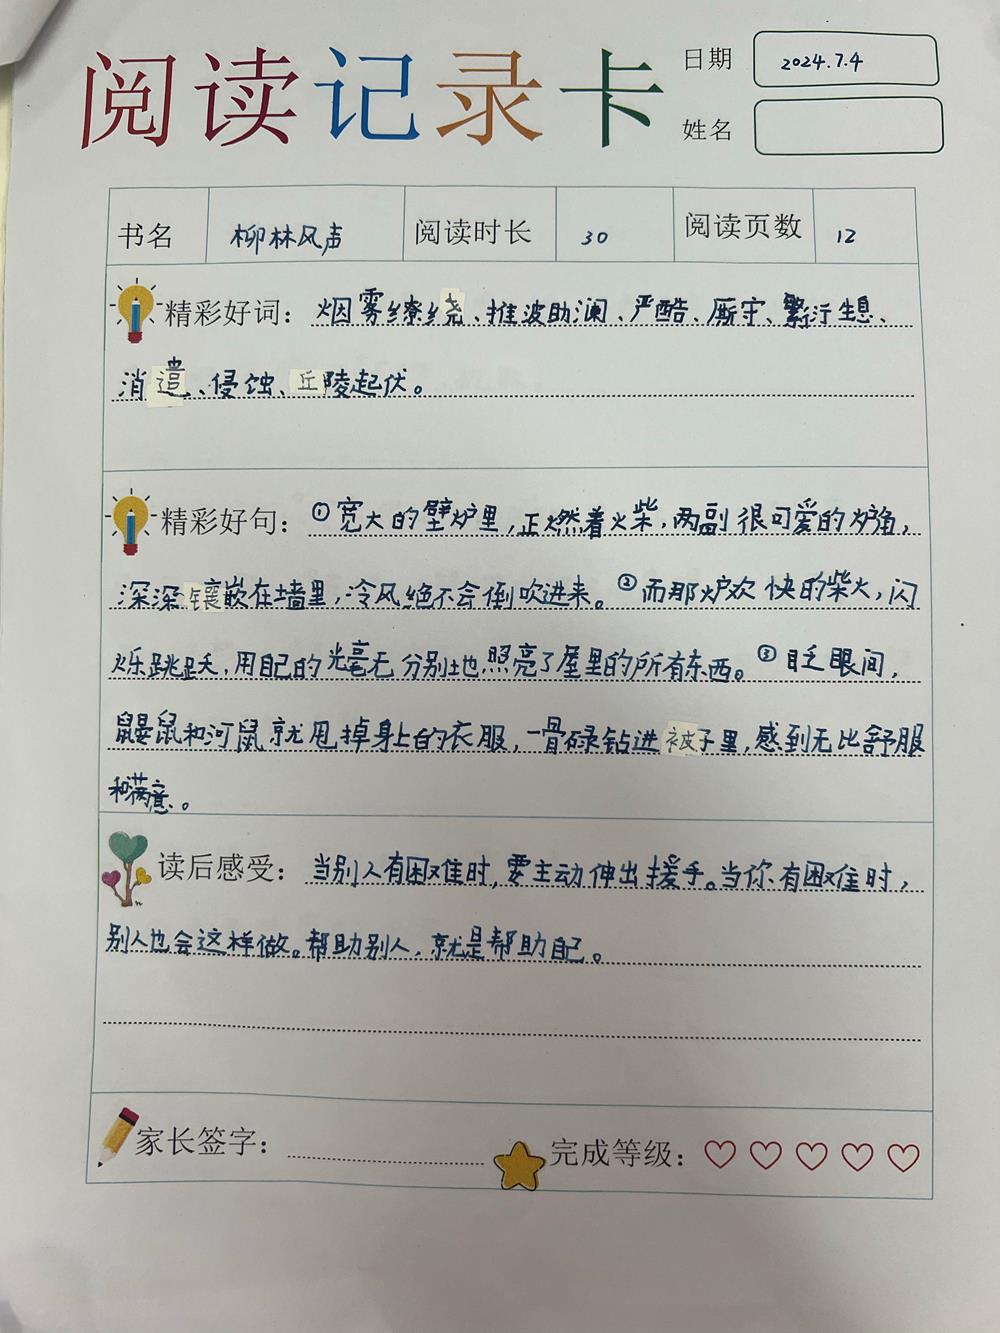 阅读记录卡
日期 2024.7.4
姓名
书名 柳林风声 阅读时长 30 阅读页数 12
精彩好词：烟雾缭绕、推波助澜、严酷、厮守、繁衍生息、
消遣、侵蚀、丘陵起伏。
精彩好句：①宽大的壁炉里，正燃着火柴，两副很可爱的炉角，
深深镶嵌在墙里，冷风绝不会倒吹进来。②而那炉欢快的柴火，闪
烁跳跃，用自己的光毫无分别地照亮了屋里的所有东西。③眨眼间，
鼹鼠和河鼠就甩掉身上的衣服，一骨碌钻进被子里，感到无比舒服
和满意。
读后感受：当别人有困难时，要主动伸出援手。当你有困难时，
别人也会这样做。帮助别人，就是帮助自己。
家长签字： 完成等级：